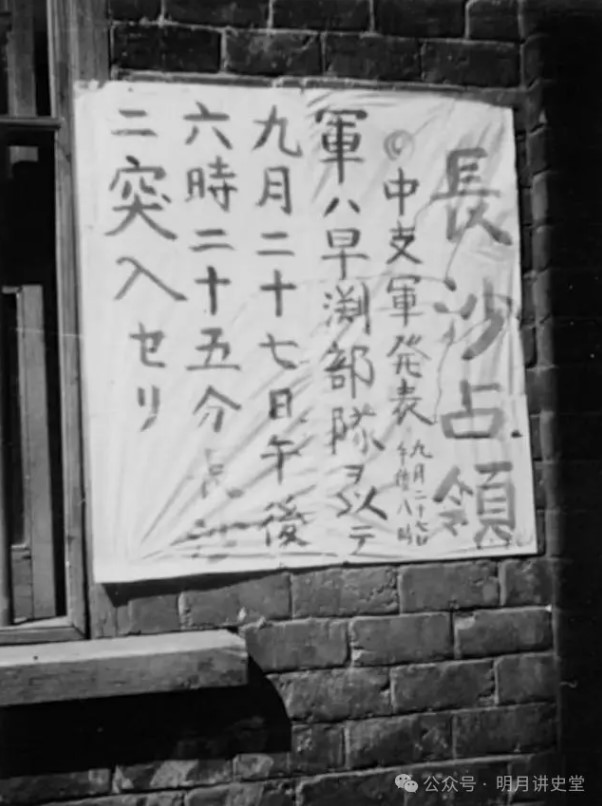 長沙占領
◎中支軍発表 九月二十七日
午後八時
軍ハ早渕部隊ヲ以テ
九月二十七日午後
六時二十五分長沙
ニ突入セリ
公众号·明月讲史堂